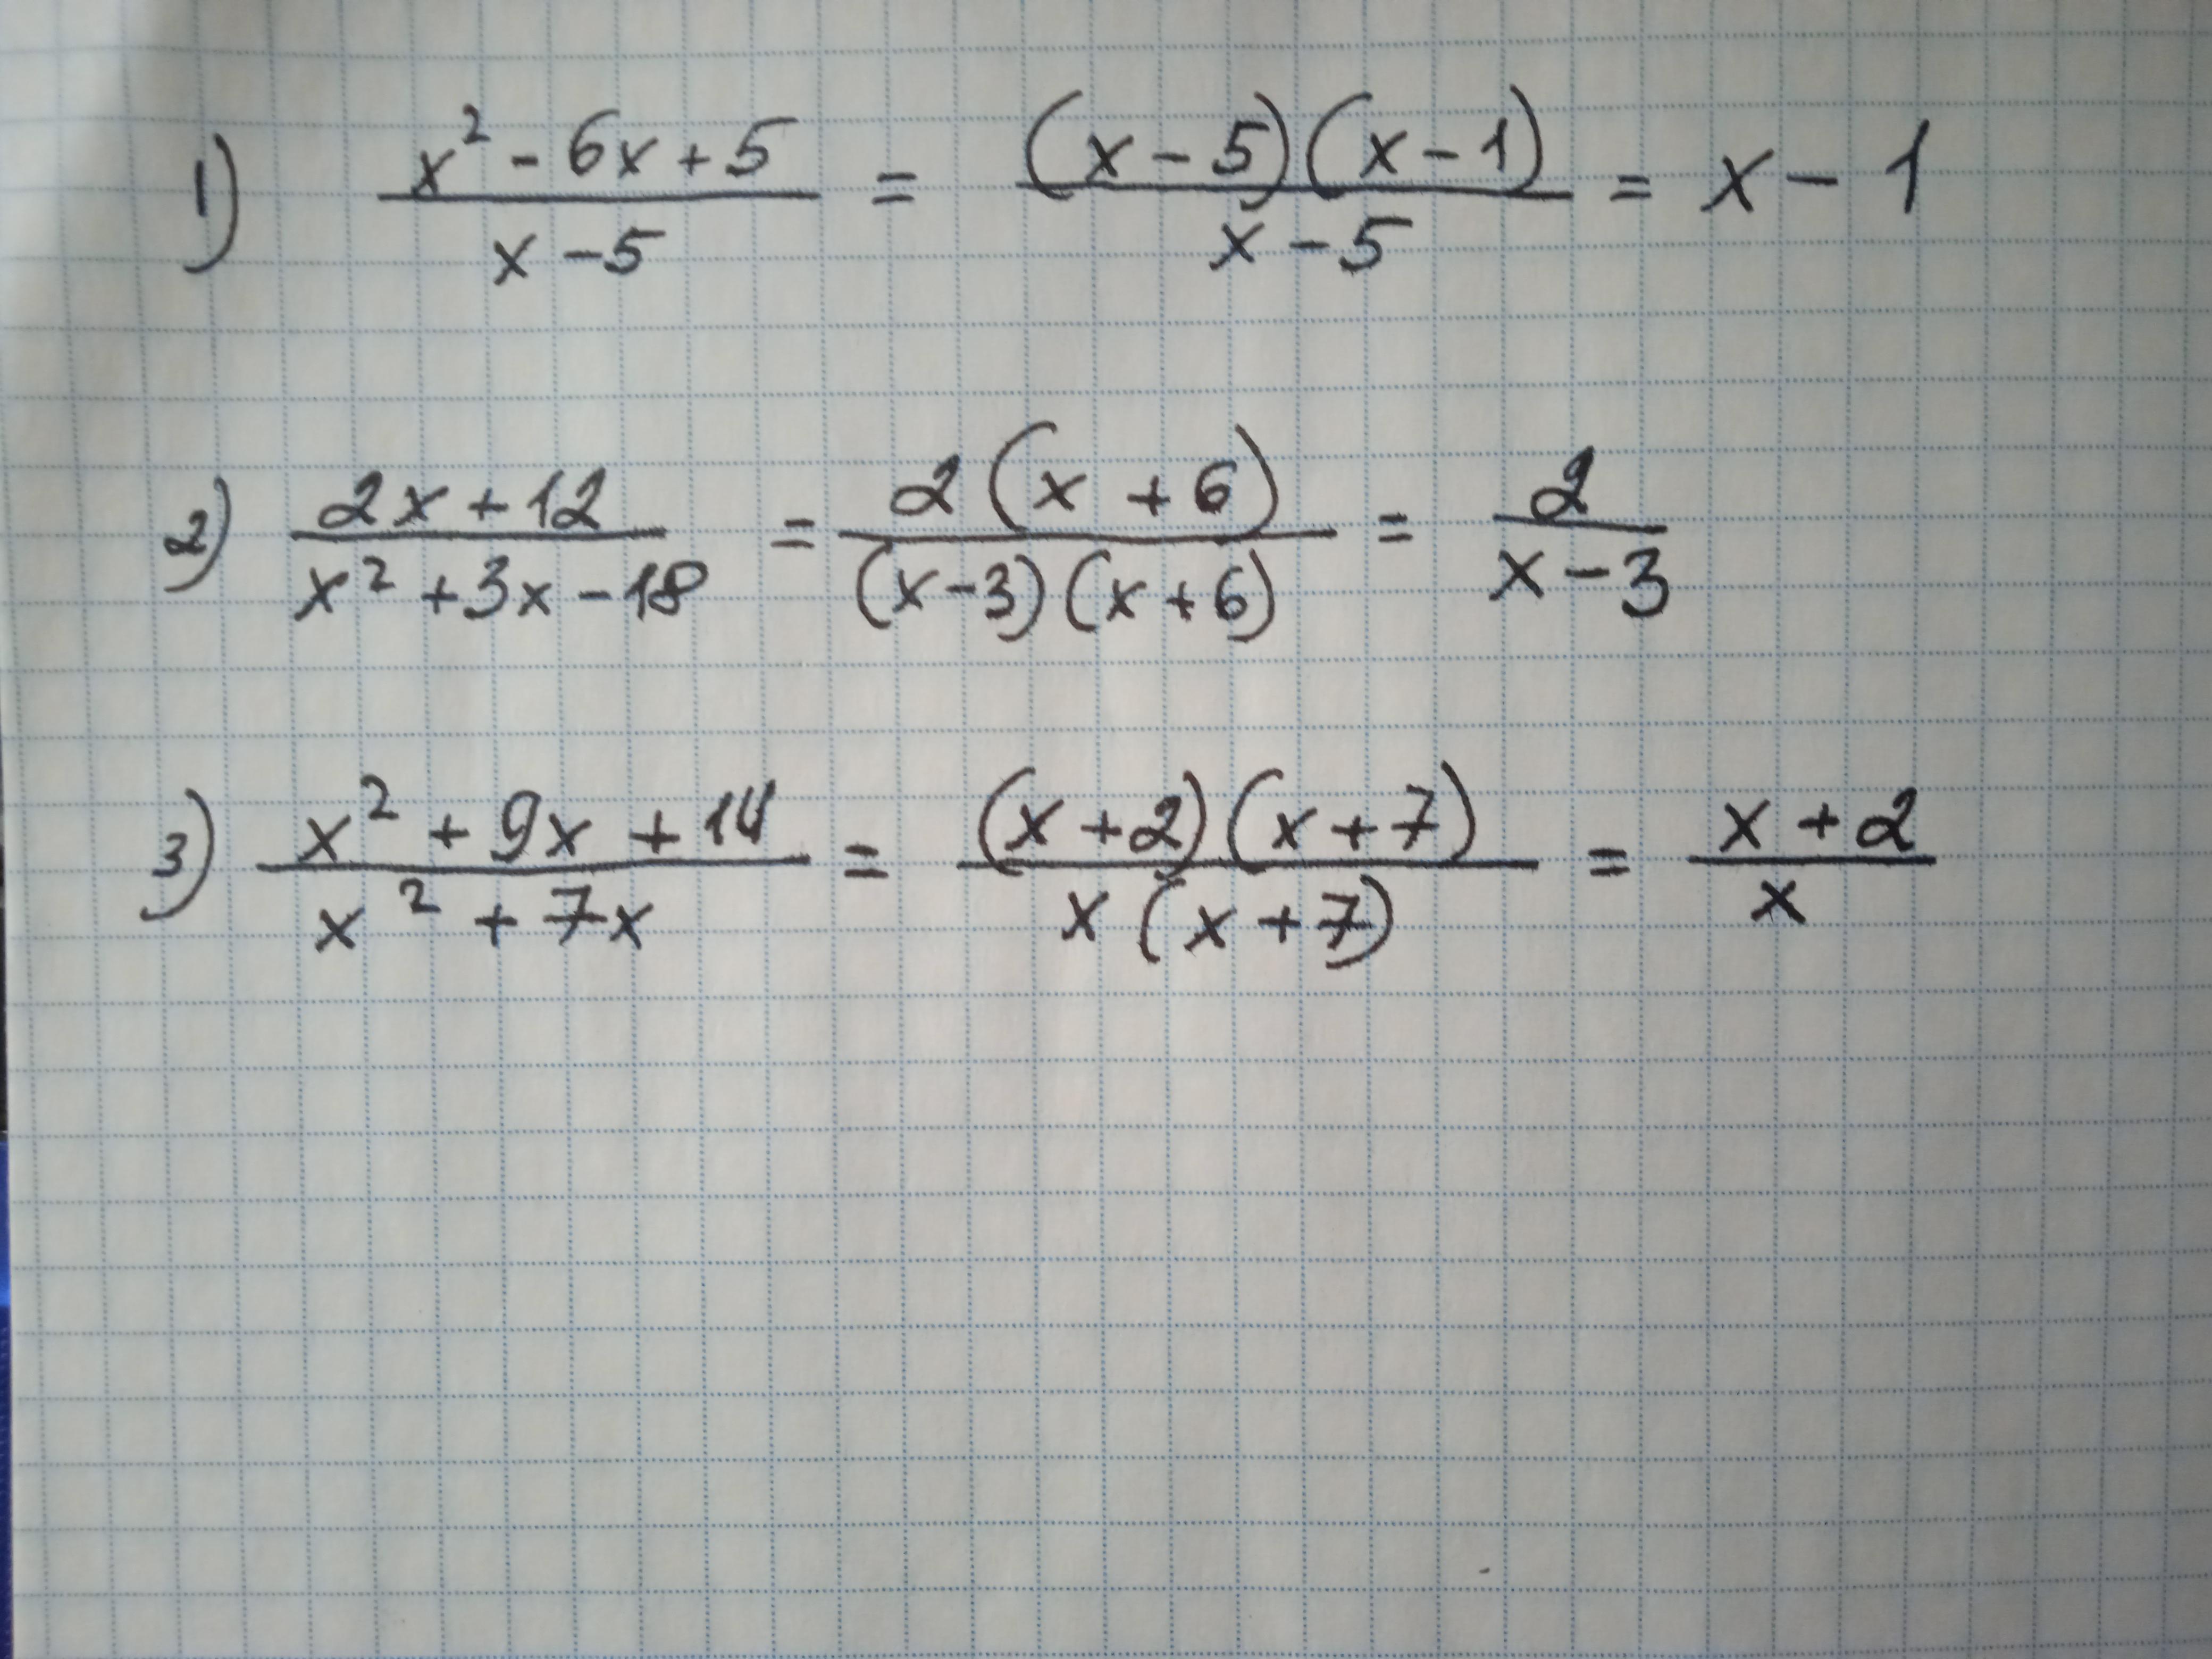 1) (x² - 6x + 5)/(x - 5) = ((x - 5)(x - 1))/(x - 5) = x - 1
2) (2x + 12)/(x² + 3x - 18) = (2(x + 6))/((x - 3)(x + 6)) = 2/(x - 3)
3) (x² + 9x + 14)/(x² + 7x) = ((x + 2)(x + 7))/(x(x + 7)) = (x + 2)/x